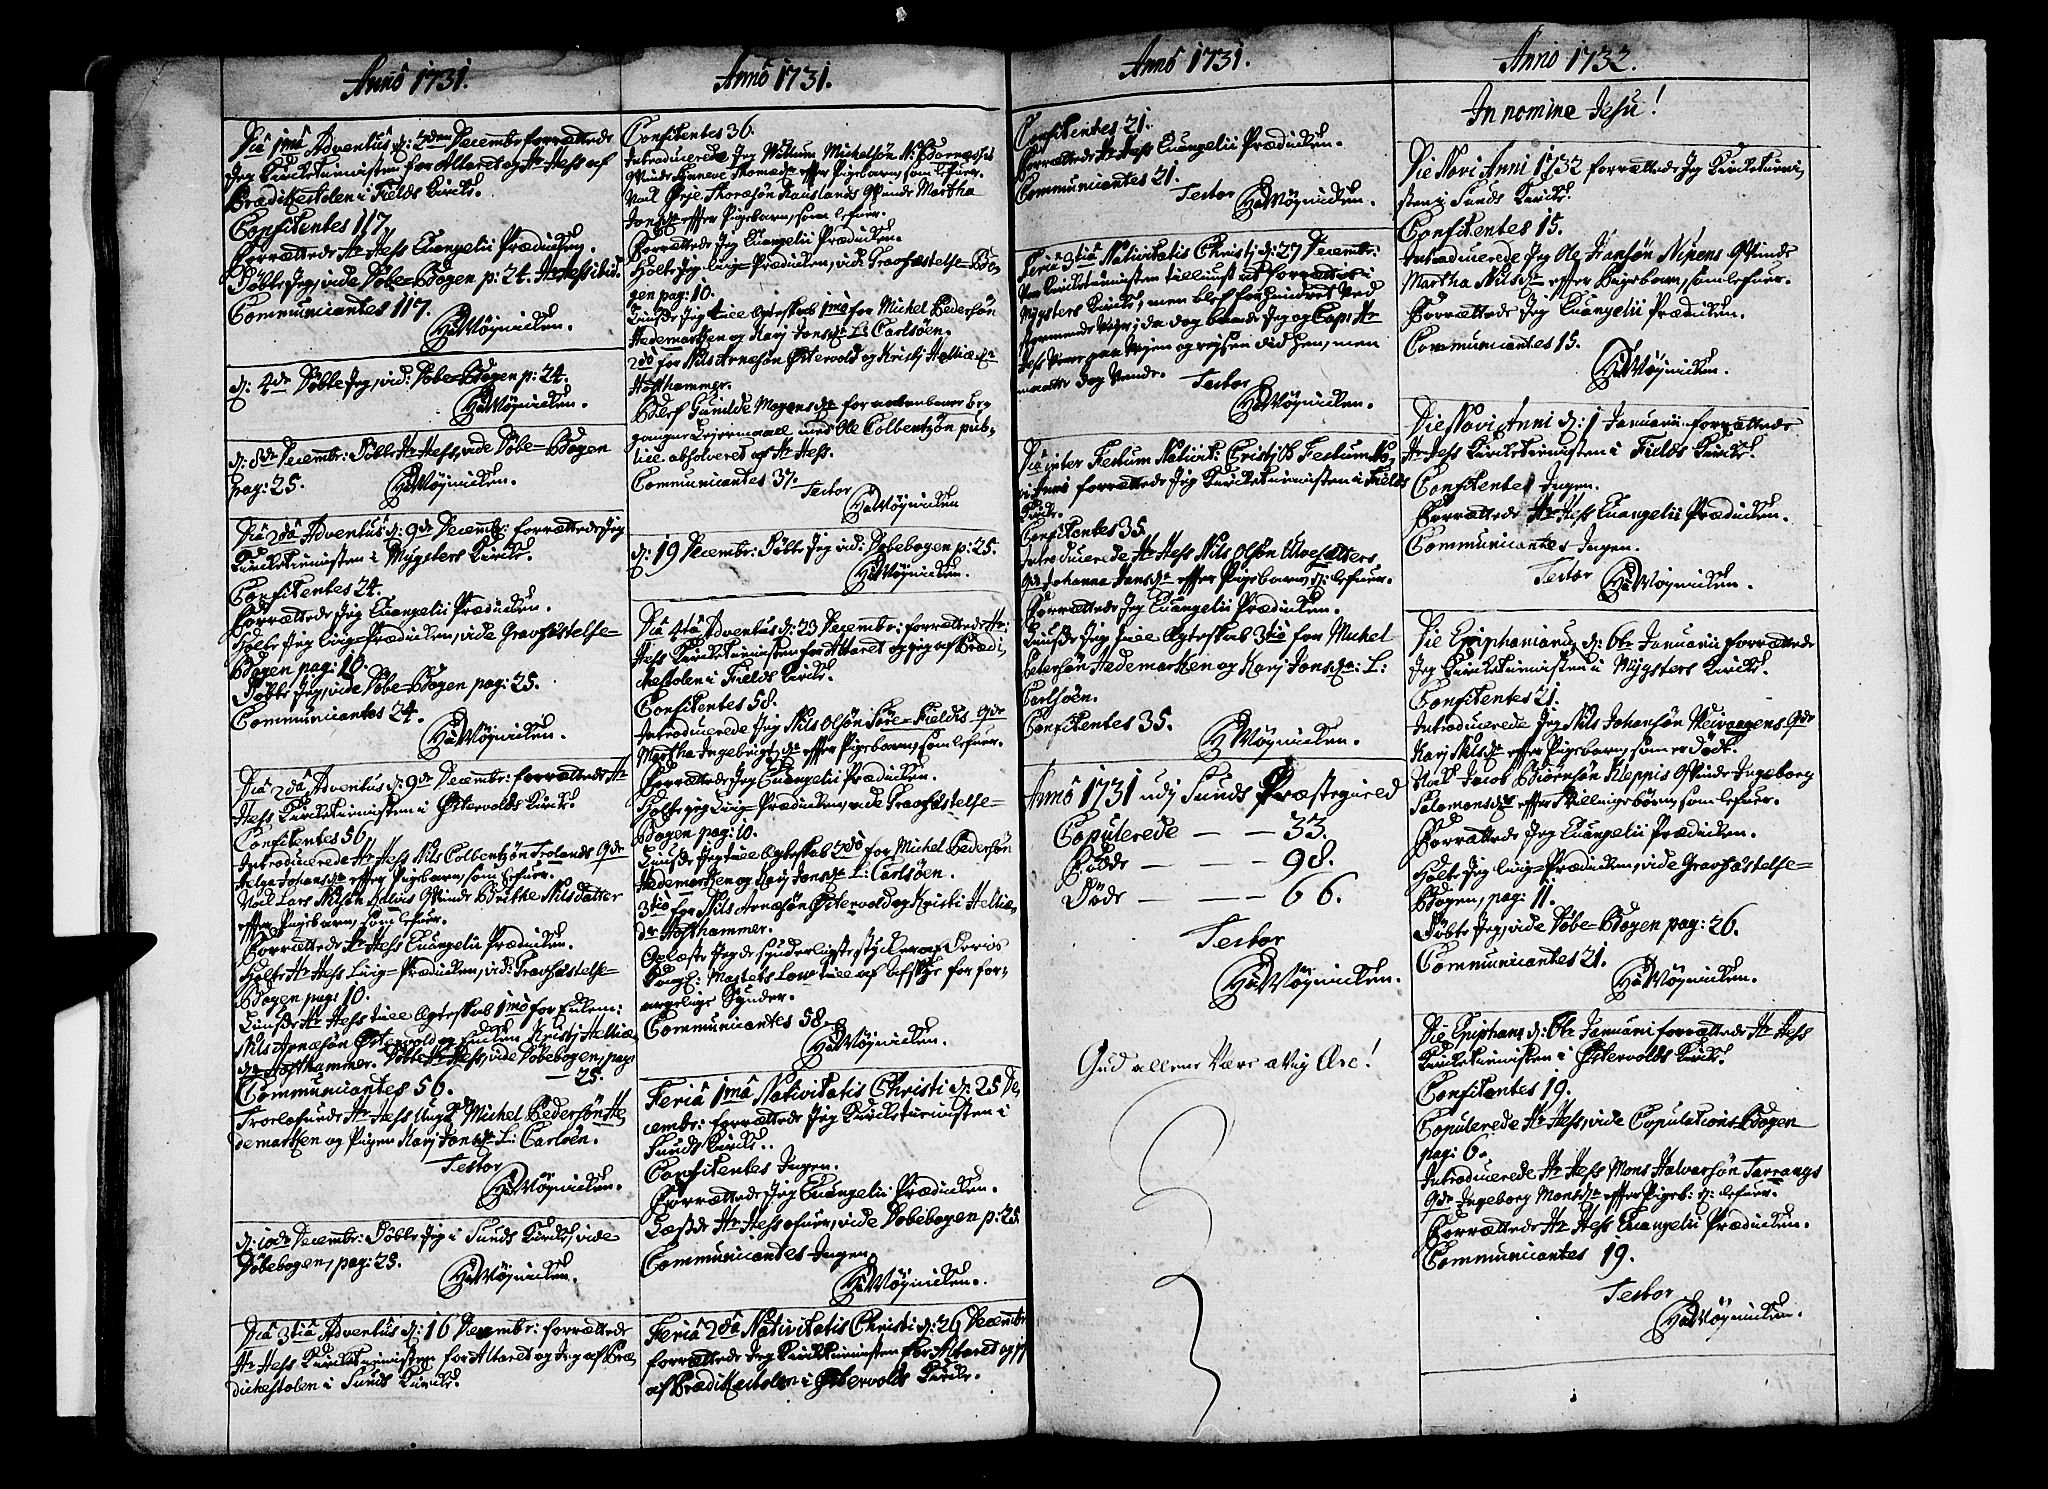 Anno 1731.
Dia 1mâ Adventus d: 2den Decembr: forrættede
Jeg Kirketienisten for Alteret og Hr Hess af
Prædikestolen i Fields Kircke.
Confitentes 117.
Forrættede Hr Hess Euangelii Prædicken.
Døbte Jeg, vide Døbe-Bogen p: 24. Hr Hess ibid.
Communicantes 117.
HaMøÿnicken.
d: 4de Døbte Jeg, vid: Døbe-Bogen p: 24.
HaMøÿnicken.
d: 8de Decembr: Døbte Hr Hess, vide Døbe-Bogen
pag: 25.
HaMøÿnicken.
Dia 2dâ Adventus d: 9de Decembr: forrættede Jeg
Kircketienisten i Mÿgsters Kircke.
Confitentes 24.
Forrættede Jeg Euangelii Prædicken.
Holte Jeg Liig-Prædicken, vide Gravfæstelse-
Bogen pag: 10.
Døbte Jeg, vide Døbe-Bogen pag: 25.
Communicantes 24.
HaMøÿnicken.
Dia 2dâ Adventus d: 9de Decembr: forrættede Hr
Hess Kircketienisten i Østervolds Kircke.
Confitentes 56.
Introducerede Hr Hess Nils Colbentzøn Trolands Qde
Helga Johansda: effter Pigebarn, som lefuer.
Noch Lars Nilsøn Qvinde Brithe Nilsdatter
effter Pigebarn, som lefuer.
Forrættede Hr Hess Euangelii Prædicken.
Holte Hr Hess Liig-Prædicken, vid: Gravfæstelse-
Bogen pag: 10.
Liusde Hr Hess till Egteskab 1mo for
Nils Arnesøn Østervold og Kristj Helliæs-
da Hofthammer. Døbte Hr Hess, vide Døbebogen, pag:
25.
Communicantes 56.
Troelofuede Hr Hess Ungk. Michel Pedersøn He-
demarken og Pigen Karj Jonsda L: Carlsøen.
Testor
HaMøÿnicken.
d: 10de Decembr: Døbte Jeg i Sunds Kircke, vide
Døbebogen, pag: 25.
HaMøÿnicken.
Dia 3tiâ Adventus d: 16 Decembr: forrættede
Hr Hess Kircketienisten for Alteret og Jeg af Præ-
dickestolen i Sunds Kircke.
Anno 1731.
Confitentes 36.
Introducerede Jeg Michelsøn
Qvinde Thomæda effter Pigebarn, som lefuer.
Noch Thoresøn Qvinde Martha
Jonsda effter Pigebarn, som lefuer.
Forrættede Jeg Euangelii Prædicken.
Holte Jeg Liig-Prædicken, vid: Gravfæstelse-Bo-
gen pag: 10.
Liusde Jeg till Egteskab 1mo for Michel Pedersøn
Hedemarken og Karj Jonsda L: Carlsøen.
2do for Nils Arnesøn Østervold og Kristj Helliæsda
Hofthammer.
Blef Gunilde Mogensda for aabenbaer be-
gangne Leiermaall med Ole Colbentzøn pub-
lice absolveret af Hr Hess.
Communicantes 37.
Testor
HaMøÿnicken
d: 19 Decembr: Døbte Jeg vid: Døbebogen p: 25.
HaMøÿnicken.
Dia 4tâ Adventus d: 23 Decembr: forrættede Hr:
Hess Kircketienisten for Alteret og jeg af Prædi-
ckestolen i Fields Kircke.
Confitentes 58.
Introducerede Jeg Nils Olsøn Søre-Fieldis Qde
Martha Ingebrigtzda effter Pigebarn, som lefuer.
Forrættede Jeg Euangelii Prædicken.
Holte jeg Liig-Prædicken, vide Gravfæstelse-
Bogen pag: 10.
Liusde Jeg till Egteskab 2do for Michel Pedersøn
Hedemarken og Karj Jonsda L: Carlsøen.
3tio for Nils Arnesøn Østervold og Kristi Helliæs-
da Hofthammer.
Oplæste Jeg de synderligste stycker af Deris
Kongl: Maytets Low till af afskye for for-
argelige Synder.
Communicantes 58.
HaMøÿnicken.
Feriâ 1mâ Nativitatis Christi d: 25 De-
cembr: forrættede Jeg Kircketienisten i
Sunds Kircke.
Confitentes Ingen.
Forrættede Jeg Euangelii Prædicken.
Læste Hr Hess ofuer, vide Døbebogen p: 25.
Communicantes Ingen.
HaMøÿnicken.
Feriâ 2dâ Nativitatis Christi d: 26 Decembr
forrættede Jeg Kircketienisten for Alteret og
af Prædickestolen i Østervolds Kircke.
Anno 1731.
Confitentes 21.
Forrættede Hr Hess Euangelii Prædicken.
Communicantes 21.
Testor
HaMøÿnicken.
Feriâ 3tiâ Nativitatis Christj d: 27 Decembr:
var Kircketienisten tilliust at forrættis i
Mÿgsters Kircke, men blef forhindret ved
stormende Vejr, da dog baade Jeg og Cap: Hr
Hess vare paa Vejen og rejsen did hen, men
maatte dog vende.
Testor
HaMøÿnicken.
Dia inter Festum Nativit: Cristj & Festum No-
vi Anni forrættede Jeg Kircketienisten i Fields
Kircke.
Confitentes 35.
Introducerede Hr Hess Nils Olsøn Ulvesætters
Qde Johanna Jansda effter Pigebarn, d: lefuer.
Forrættede Jeg Euangelii Prædicken.
Liusde Jeg till Egteskab 3tio for Michel
Pedersøn Hedemarken og Karj Jonsda: L:
Carlsøen.
Confitentes 35.
HaMøÿnicken.
Anno 1731 udj Sunds Præstegield
Copulerede — — 33.
Fødde — — — 98.
Døde — — — 66.
Testor
HaMøÿnicken.
Gud allene være ævig Ære!
Anno 1732.
In nomine Jesu!
Die Novi Anni 1732 forrættede Jeg Kircketieni-
sten i Sunds Kircke.
Confitentes 15.
Introducerede Jeg Ole Hansøn Nipens Qvinde
Martha Nilsda effter Pigebarn, som lefuer.
Forrættede Jeg Euangelii Prædicken.
Communicantes 15.
HaMøÿnicken.
Die Novi Anni d: 1 Januarii forrættede
Hr Hess Kircketienisten i Fields Kircke.
Confitentes Ingen.
Forrættede Hr Hess Euangelii Prædicken.
Communicantes Ingen.
Testor
HaMøÿnicken.
Die Epiphanias d: 6te Januarii forrættede
Jeg Kircketienisten i Mÿgsters Kircke.
Confitentes 21.
Introducerede Jeg Nils Johansøn Veivaagens Qde
Karj Nilsda effter Pigebarn, som er død.
Noch Jacob Biørnsøn Kleppis Qvinde Ingeborg
Salomonsda effter Tvillingebørn, som lefuer.
Forrættede Jeg Euangelii Prædicken.
Holte Jeg Liig-Prædicken, vide Gravfæstelse-
Bogen, pag: 11.
Døbte Jeg, vide Døbe-Bogen pag: 26.
Communicantes 21.
HaMøÿnicken.
Die Epiphan: d: 6te Januarii forrættede Hr Hess
Kircketienisten i Østervolds Kircke.
Confitentes 19.
Copulerede Hr Hess, vide Copulations-Bogen
pag: 6.
Introducerede Hr Hess Mons Halvorsøn Tarrangs
Qde Ingeborg Monsda effter Pigeb: d: lefuer.
Forrættede Hr Hess Euangelii Prædicken.
Communicantes 19.
Testor
HaMøÿnicken.